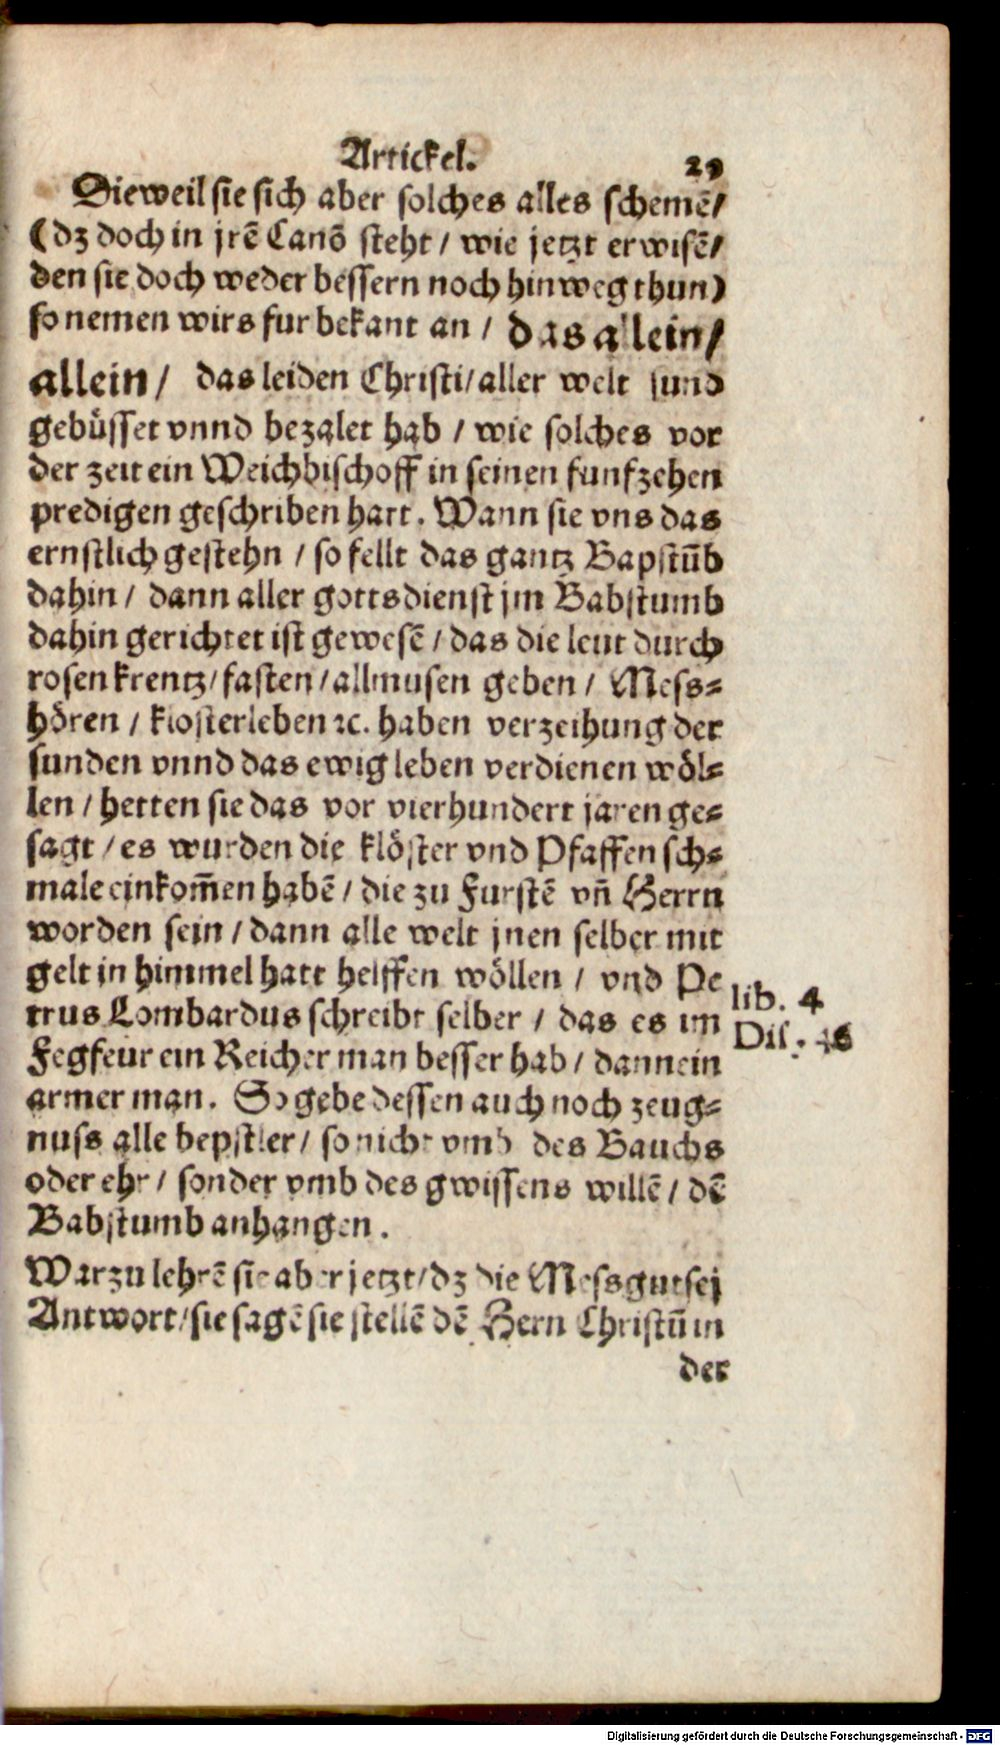 Artickel. 29
Dieweil sie sich aber solches alles schemẽ/
(dz doch in jrẽ Canõ steht / wie jetzt erwisẽ/
den sie doch weder bessern noch hinweg thun)
so nemen wirs fur bekant an / das allein/
allein / das leiden Christi/ aller welt sund
gebüsset vnnd bezalet hab / wie solches vor
der zeit ein Weichbischoff in seinen funfzehen
predigen geschriben hatt. Wann sie vns das
ernstlich gestehn / so fellt das gantz Bapstũb
dahin / dann aller gottsdienst jm Babstumb
dahin gerichtet ist gewesẽ / das die leut durch
rosenkrentz/ fasten/ allmusen geben / Mess-
hören / klosterleben ꝛc. haben verzeihung der
sunden vnnd das ewig leben verdienen wöl-
len / hetten sie das vor vierhundert jaren ge-
sagt / es wurden die klöster vnd Pfaffen sch-
male einkom̃en habẽ / die zu Furstẽ vñ Herrn
worden sein / dann alle welt jnen selber mit
gelt in himmel hatt helffen wöllen / vnd Pe
trus Lombardus schreibt selber / das es im
Fegfeur ein Reicher man besser hab / dann ein
armer man. So gebe dessen auch noch zeug-
nuss alle bepstler / so nicht vmb des Bauchs
oder ehr / sonder vmb des gwissens willẽ / dẽ
Babstumb anhangen.
Warzu lehrẽ sie aber jetzt/ dz die Mess gut sej
Antwort/ sie sagẽ sie stellẽ dẽ Hern Christũ in
der
lib. 4
Dis. 46
Digitalisierung gefördert durch die Deutsche Forschungsgemeinschaft - DFG